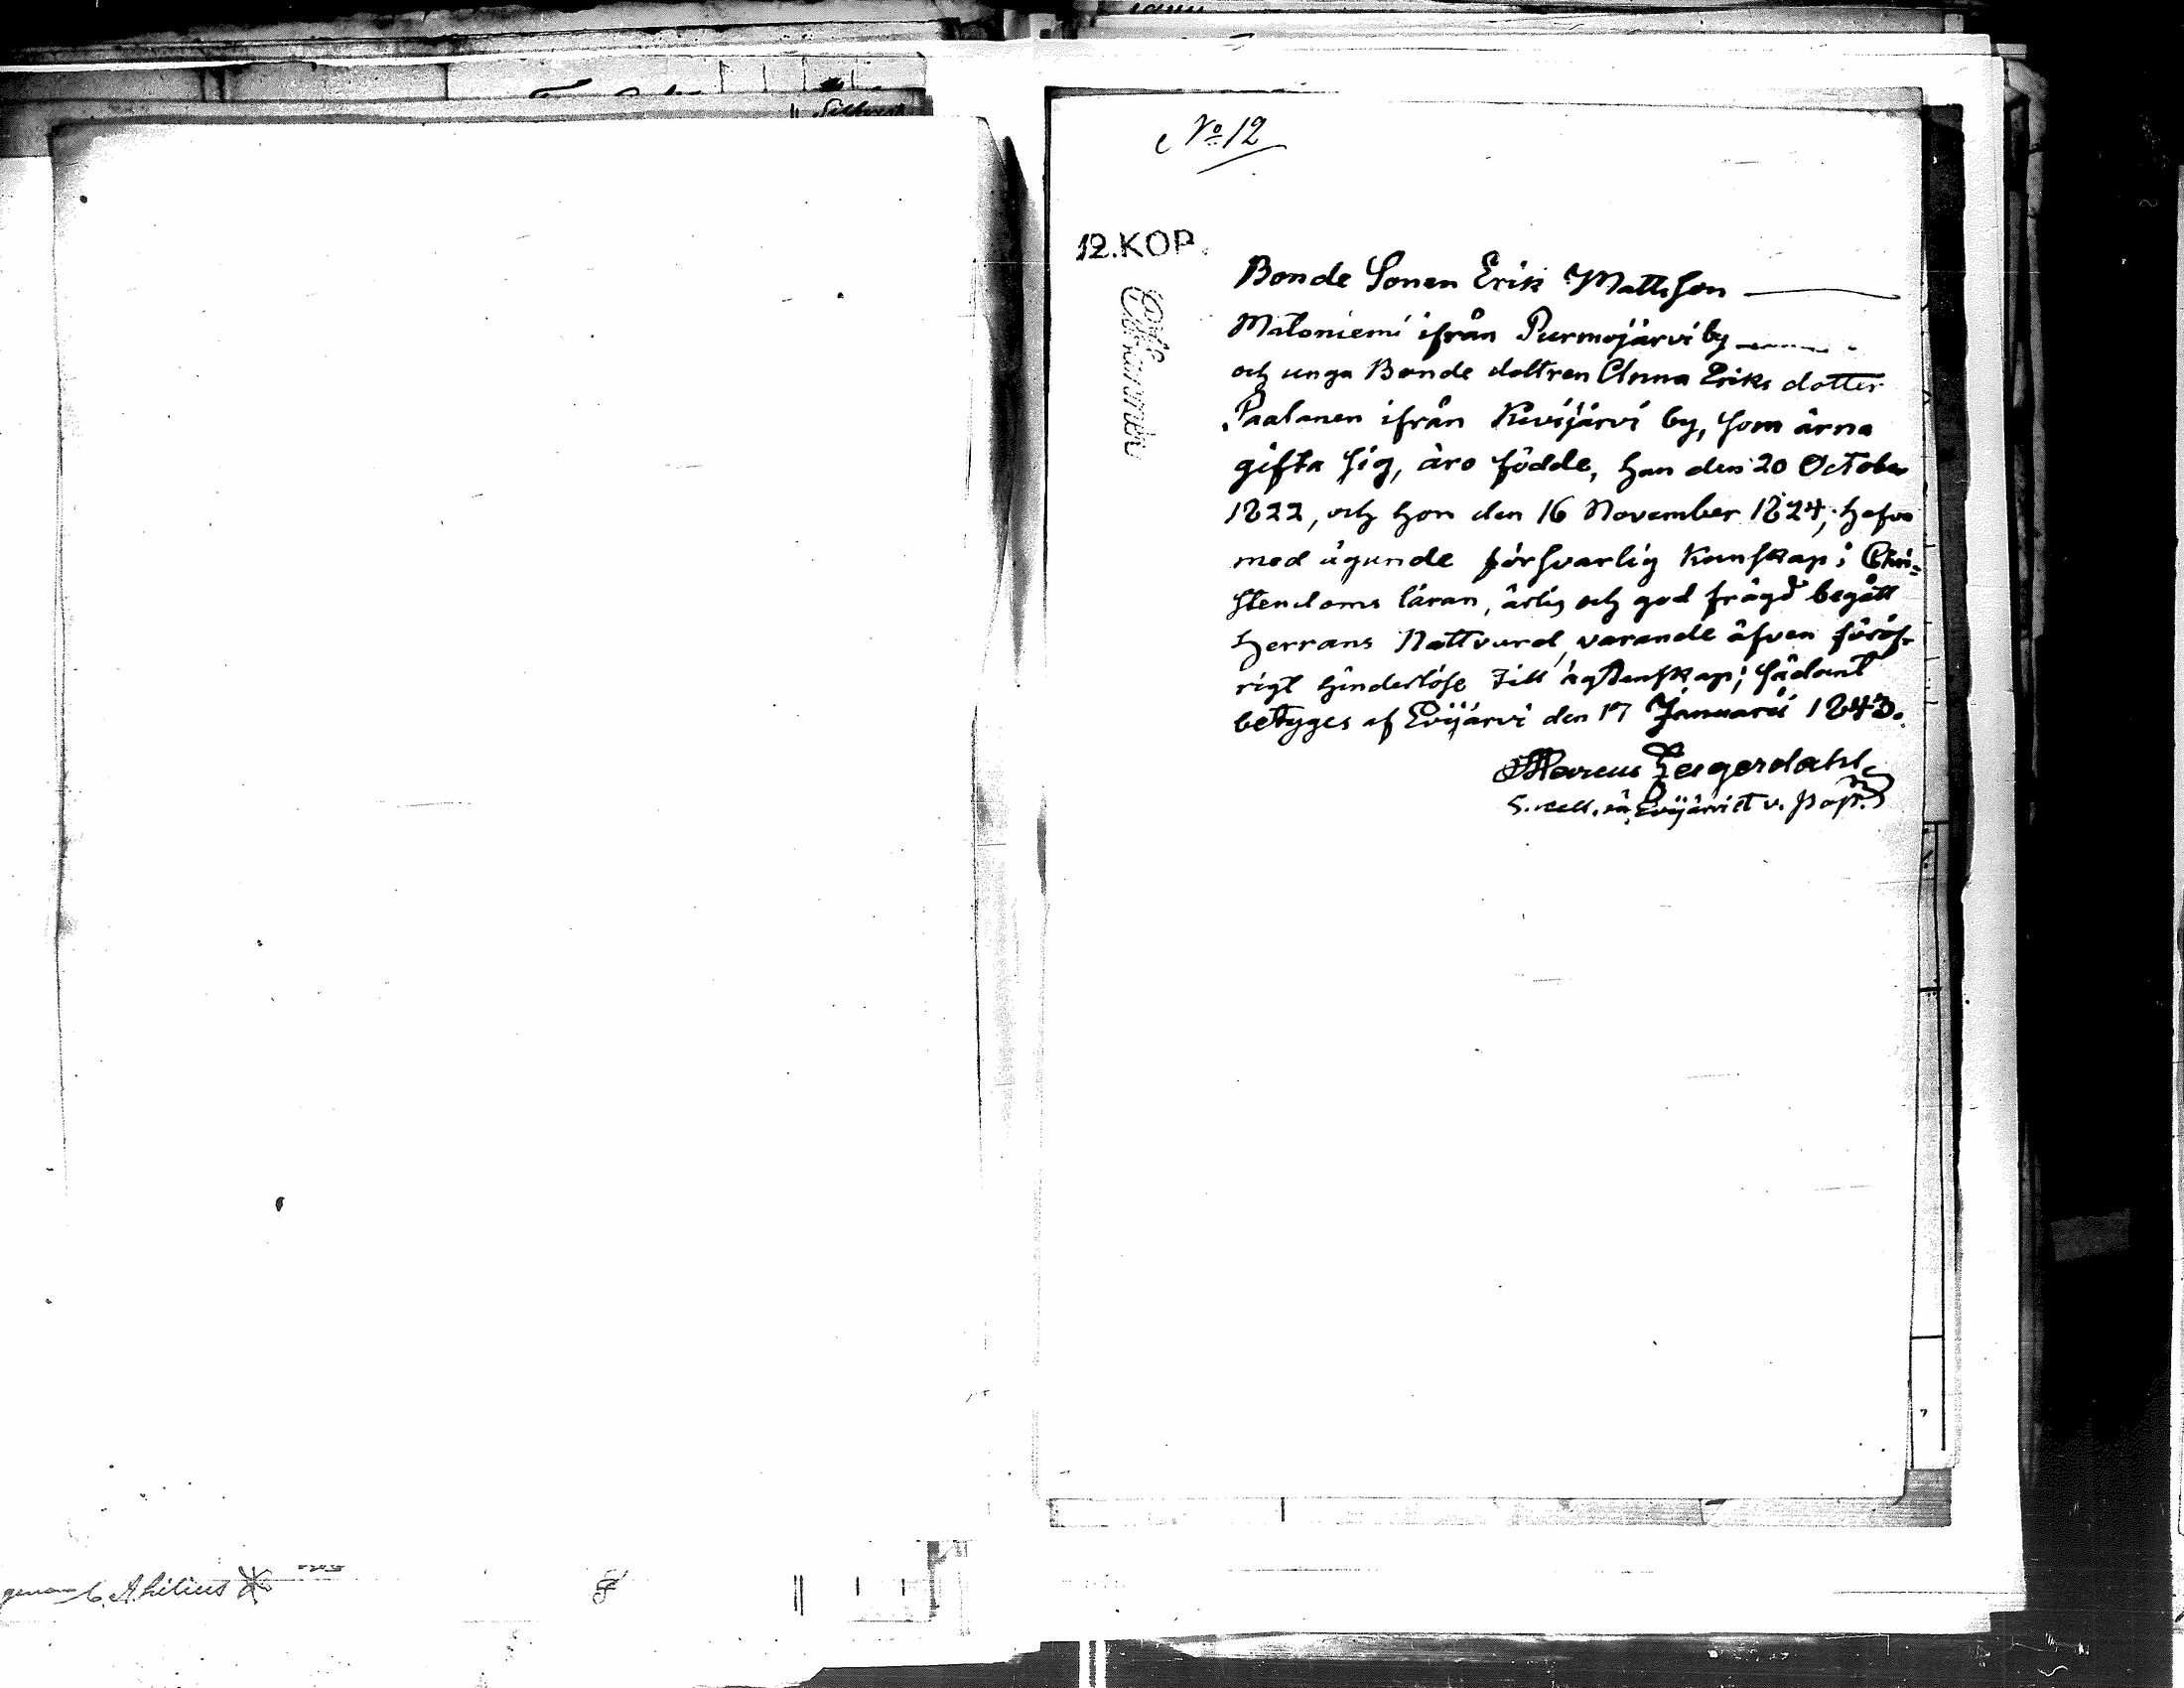 No 12
12. KOP.
Bonde Sonen Erik Mattsson
Matoniemi ifrån Purmojärvi by
och unga Bonde dottren Anna Eriks dotter
Paalanen ifrån Kivijärvi by, som ärna
gifta sig, äro födde, han den 20 October
1822, och hon den 16 November 1824, hafva
med ägande försvarlig Kunskap i Chri-
stendoms läran, ärlig och god frägd begått
Herrans Nattvard, varande äfven föröf-
rigt hinderlöse till ägtenskap; sådant
betyges af Evijärvi den 17 Januarii 1843.
Marcus Legerdahl
Evijärvi
C. Ahilius